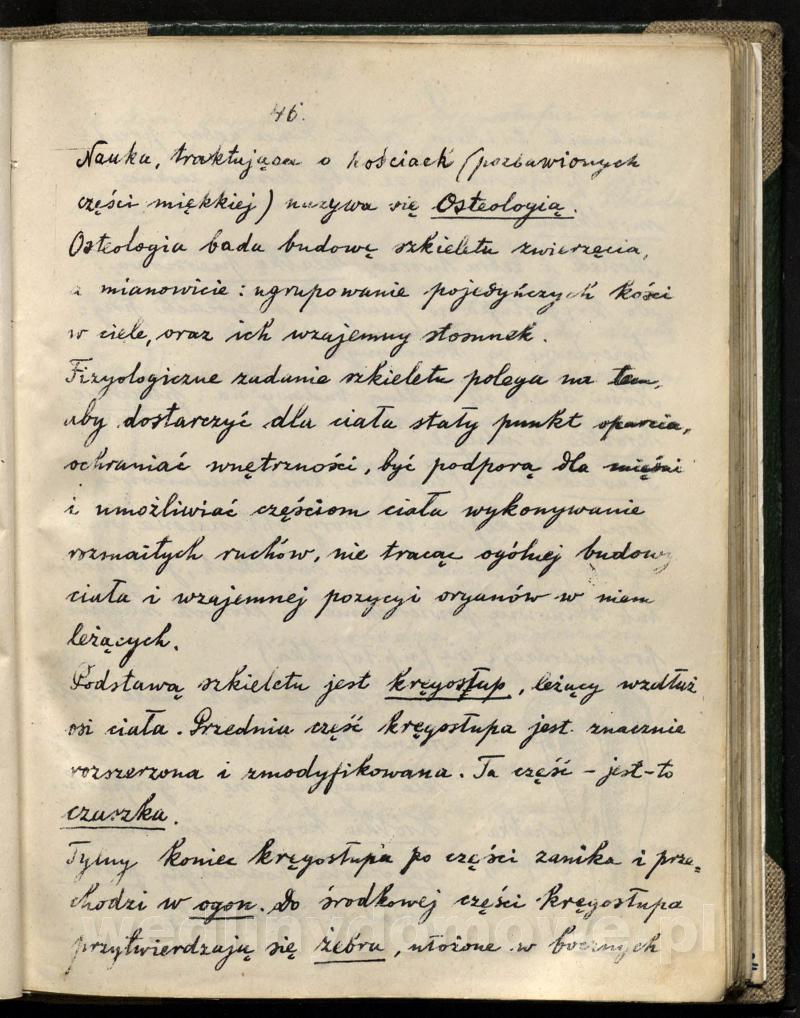 46.
Nauka, traktująca o kościach (pozbawionych
części miękkiej) nazywa się Osteologią.
Osteologia bada budowę szkieletu zwierzęcia,
a mianowicie: ugrupowanie pojedyńczych kości
w ciele, oraz ich wzajemny stosunek.
Fizyologiczne zadanie szkieletu polega na tem,
aby dostarczyć dla ciała stały punkt oparcia,
ochraniać wnętrzności, być podporą dla mięśni
i umożliwiać częściom ciała wykonywanie
rozmaitych ruchów, nie tracąc ogólnej budowy
ciała i wzajemnej pozycyi organów w niem
leżących.
Podstawą szkieletu jest kręgosłup, leżący wzdłuż
osi ciała. Przednia część kręgosłupa jest znacznie
rozszerzona i zmodyfikowana. Ta część – jest-to
czaszka.
Tylny koniec kręgosłupa po części zanika i prze=
chodzi w ogon. Do środkowej części kręgosłupa
przytwierdzają się żebra, ułożone w bocznych